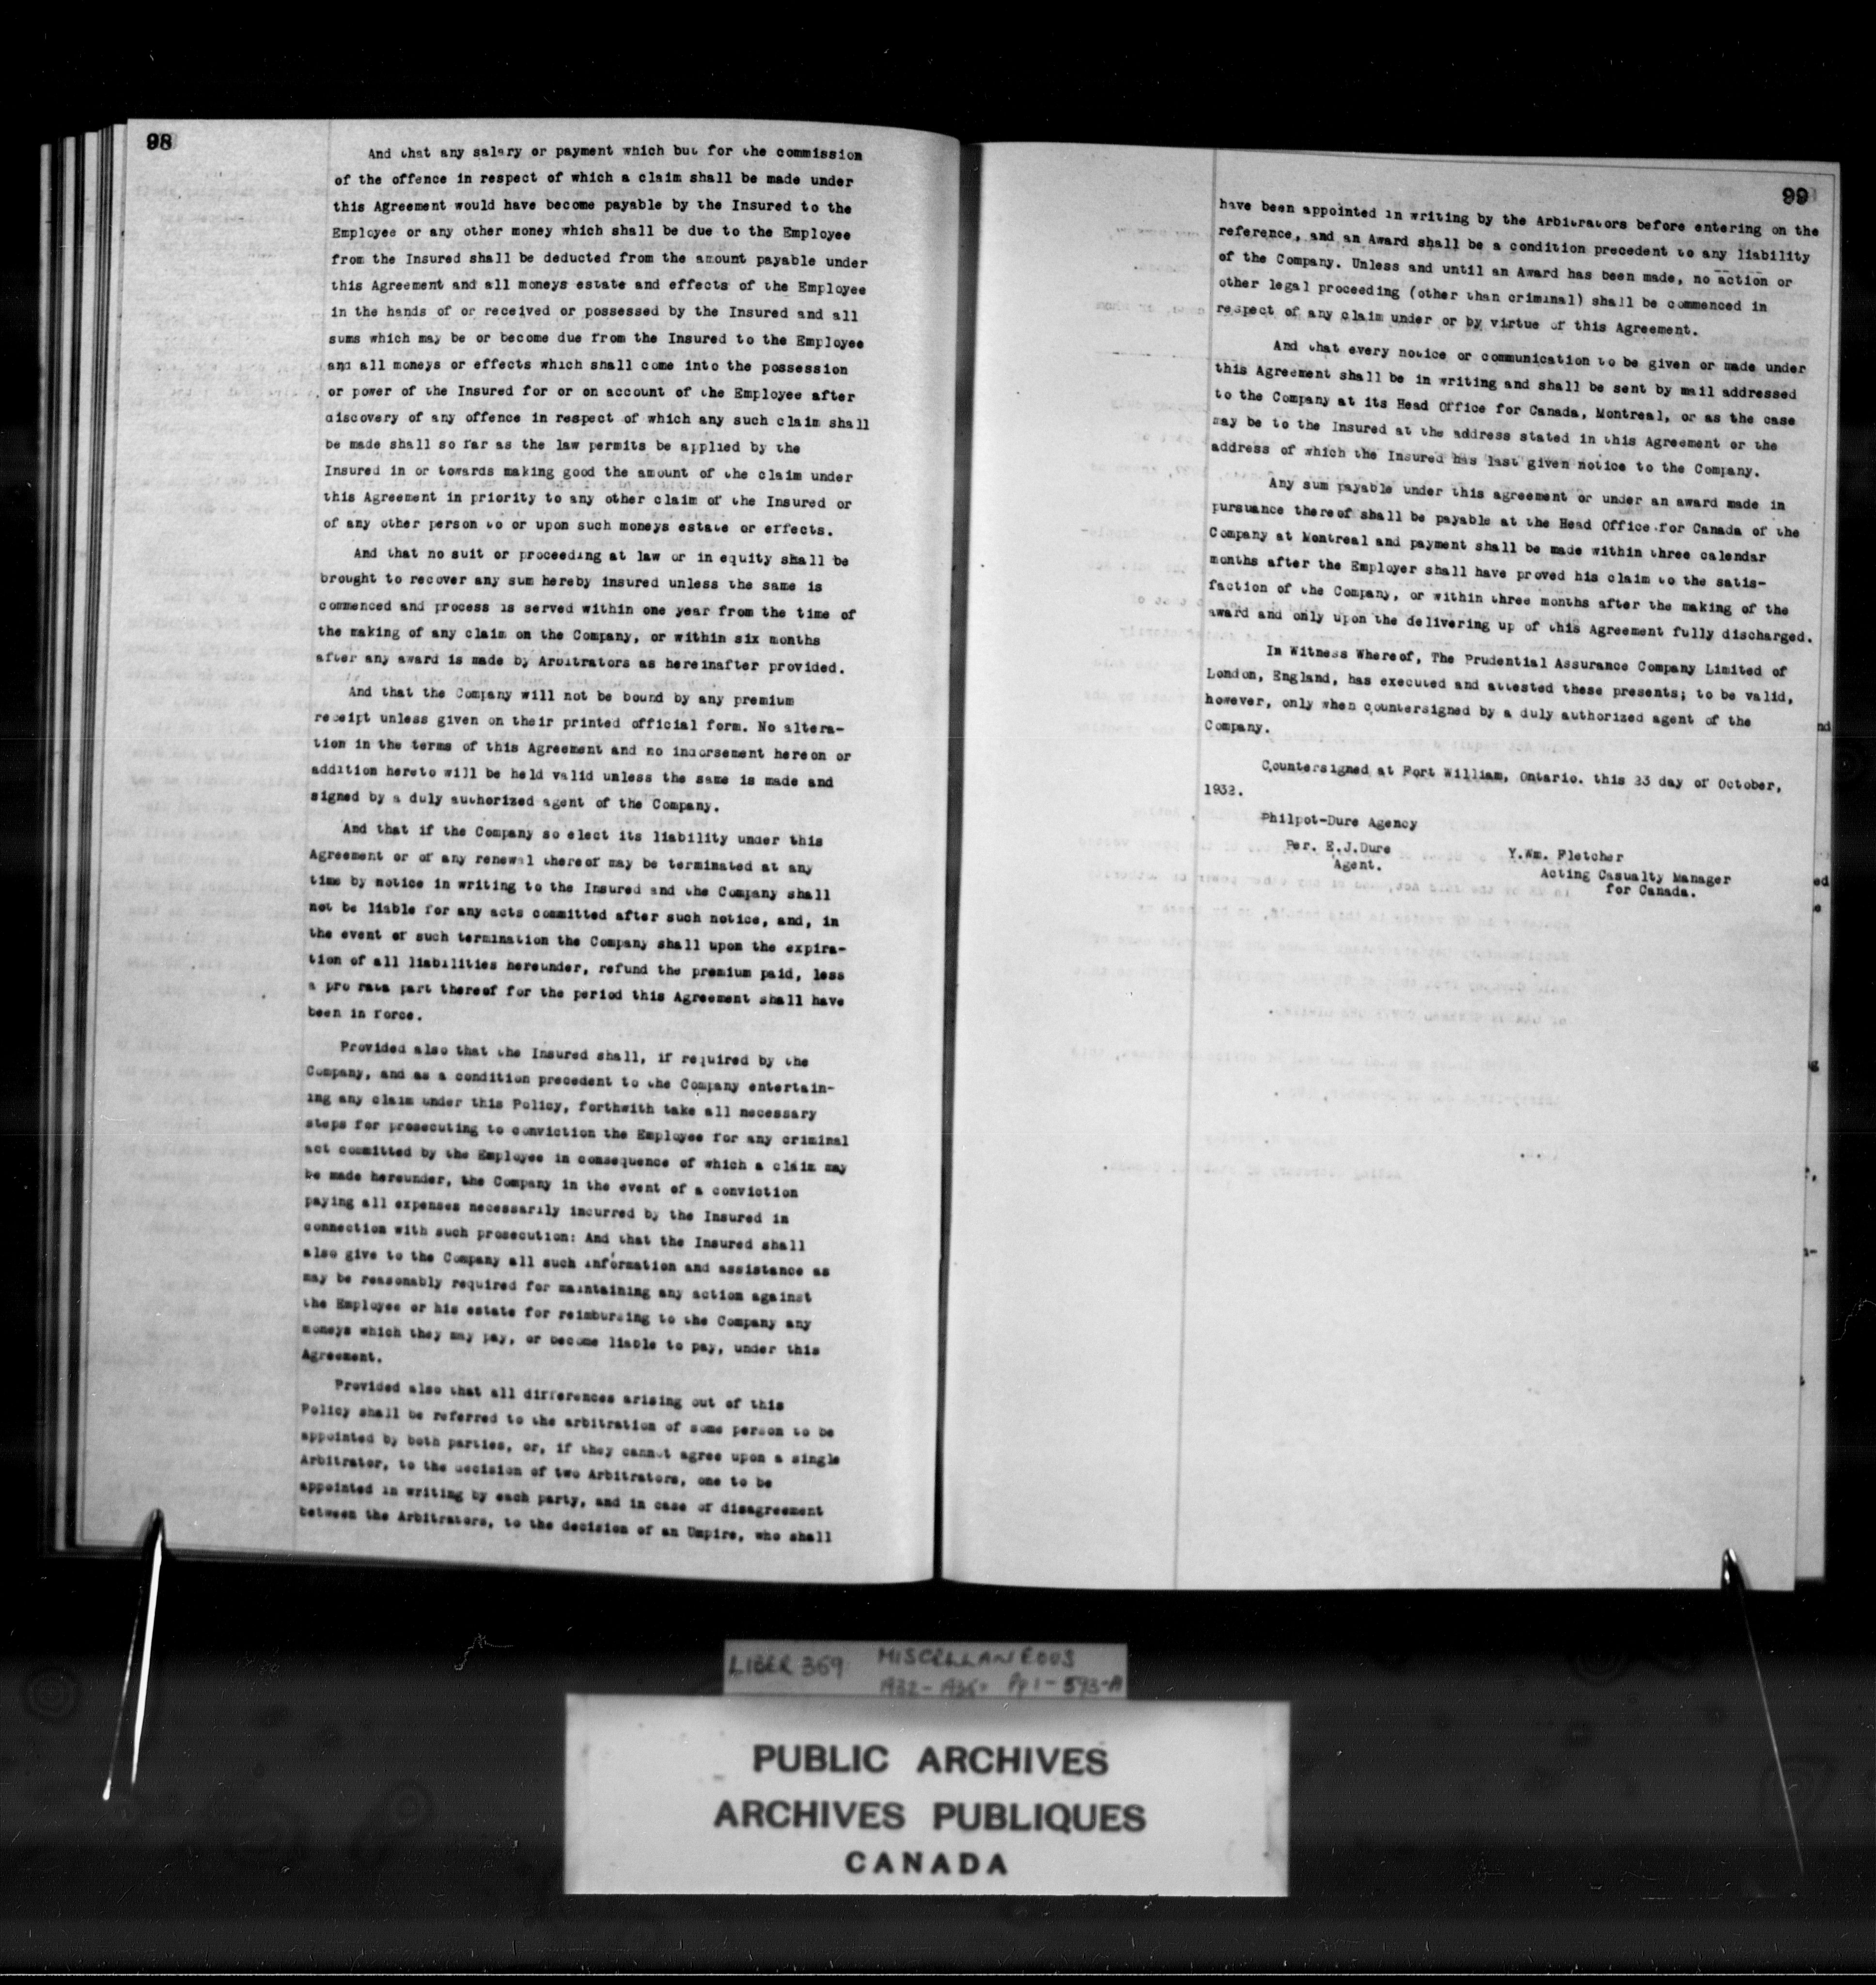 98
And that any salary or payment which but for the commission
of the offence in respect of which a claim shall be made under
this Agreement would have become payable by the Insured to the
Employee or any other money which shall be due to the Employee
from the Insured shall be deducted from the amount payable under
this Agreement and all moneys estate and effects of the Employee
in the hands of or received or possessed by the Insured and all
sums which may be or become due from the Insured to the Employee
and all moneys or effects which shall come into the possession
or power of the Insured for or on account of the Employee after
discovery of any offence in respect of which any such claim shall
be made shall so far as the law permits be applied by the
Insured in or towards making good the amount of the claim under
this Agreement in priority to any other claim of the Insured or
of any other person to or upon such moneys estate or effects.
And that no suit or proceeding at law or in equity shall be
brought to recover any sum hereby insured unless the same is
commenced and process is served within one year from the time of
the making of any claim on the Company, or within six months
after any award is made by Arbitrators as hereinafter provided.
And that the Company will not be bound by any premium
receipt unless given on their printed official form. No altera-
tion in the terms of this Agreement and no indorsement hereon or
addition hereto will be held valid unless the same is made and
signed by a duly authorized agent of the Company.
And that if the Company so elect its liability under this
Agreement or of any renewal thereof may be terminated at any
time by notice in writing to the Insured and the Company shall
not be liable for any acts committed after such notice, and, in
the event of such termination the Company shall upon the expira-
tion of all liabilities hereunder, refund the premium paid, less
a pro rata part thereof for the period this Agreement shall have
been in force.
Provided also that the Insured shall, if required by the
Company, and as a condition precedent to the Company entertain-
ing any claim under this Policy, forthwith take all necessary
steps for prosecuting to conviction the Employee for any criminal
act committed by the Employee in consequence of which a claim may
be made hereunder, the Company in the event of a conviction
paying all expenses necessarily incurred by the Insured in
connection with such prosecution: And that the Insured shall
also give to the Company all such information and assistance as
may be reasonably required for maintaining any action against
the Employee or his estate for reimbursing to the Company any
moneys which they may pay, or become liable to pay, under this
Agreement.
Provided also that all differences arising out of this
Policy shall be referred to the arbitration of some person to be
appointed by both parties, or, if they cannot agree upon a single
Arbitrator, to the decision of two Arbitrators, one to be
appointed in writing by each party, and in case of disagreement
between the Arbitrators, to the decision of an Umpire, who shall
99
have been appointed in writing by the Arbitrators before entering on the
reference, and an Award shall be a condition precedent to any liability
of the Company. Unless and until an Award has been made, no action or
other legal proceeding (other than criminal) shall be commenced in
respect of any claim under or by virtue of this Agreement.
And that every notice or communication to be given or made under
this Agreement shall be in writing and shall be sent by mail addressed
to the Company at its Head Office for Canada, Montreal, or as the case
may be to the Insured at the address stated in this Agreement or the
address of which the Insured has last given notice to the Company.
Any sum payable under this agreement or under an award made in
pursuance thereof shall be payable at the Head Office for Canada of the
Company at Montreal and payment shall be made within three calendar
months after the Employer shall have proved his claim to the satis-
faction of the Company, or within three months after the making of the
award and only upon the delivering up of this Agreement fully discharged.
In Witness Whereof, The Prudential Assurance Company Limited of
London, England, has executed and attested these presents; to be valid,
however, only when countersigned by a duly authorized agent of the
Company.
Countersigned at Fort William, Ontario. this 23 day of October,
1932.
Philpot-Dure Agency
Per. E.J.Dure
Agent.
Y.Wm. Fletcher
Acting Casualty Manager
for Canada.
LIBER 369 MISCELLANEOUS
Pp 1 - 593-A
PUBLIC ARCHIVES
ARCHIVES PUBLIQUES
CANADA